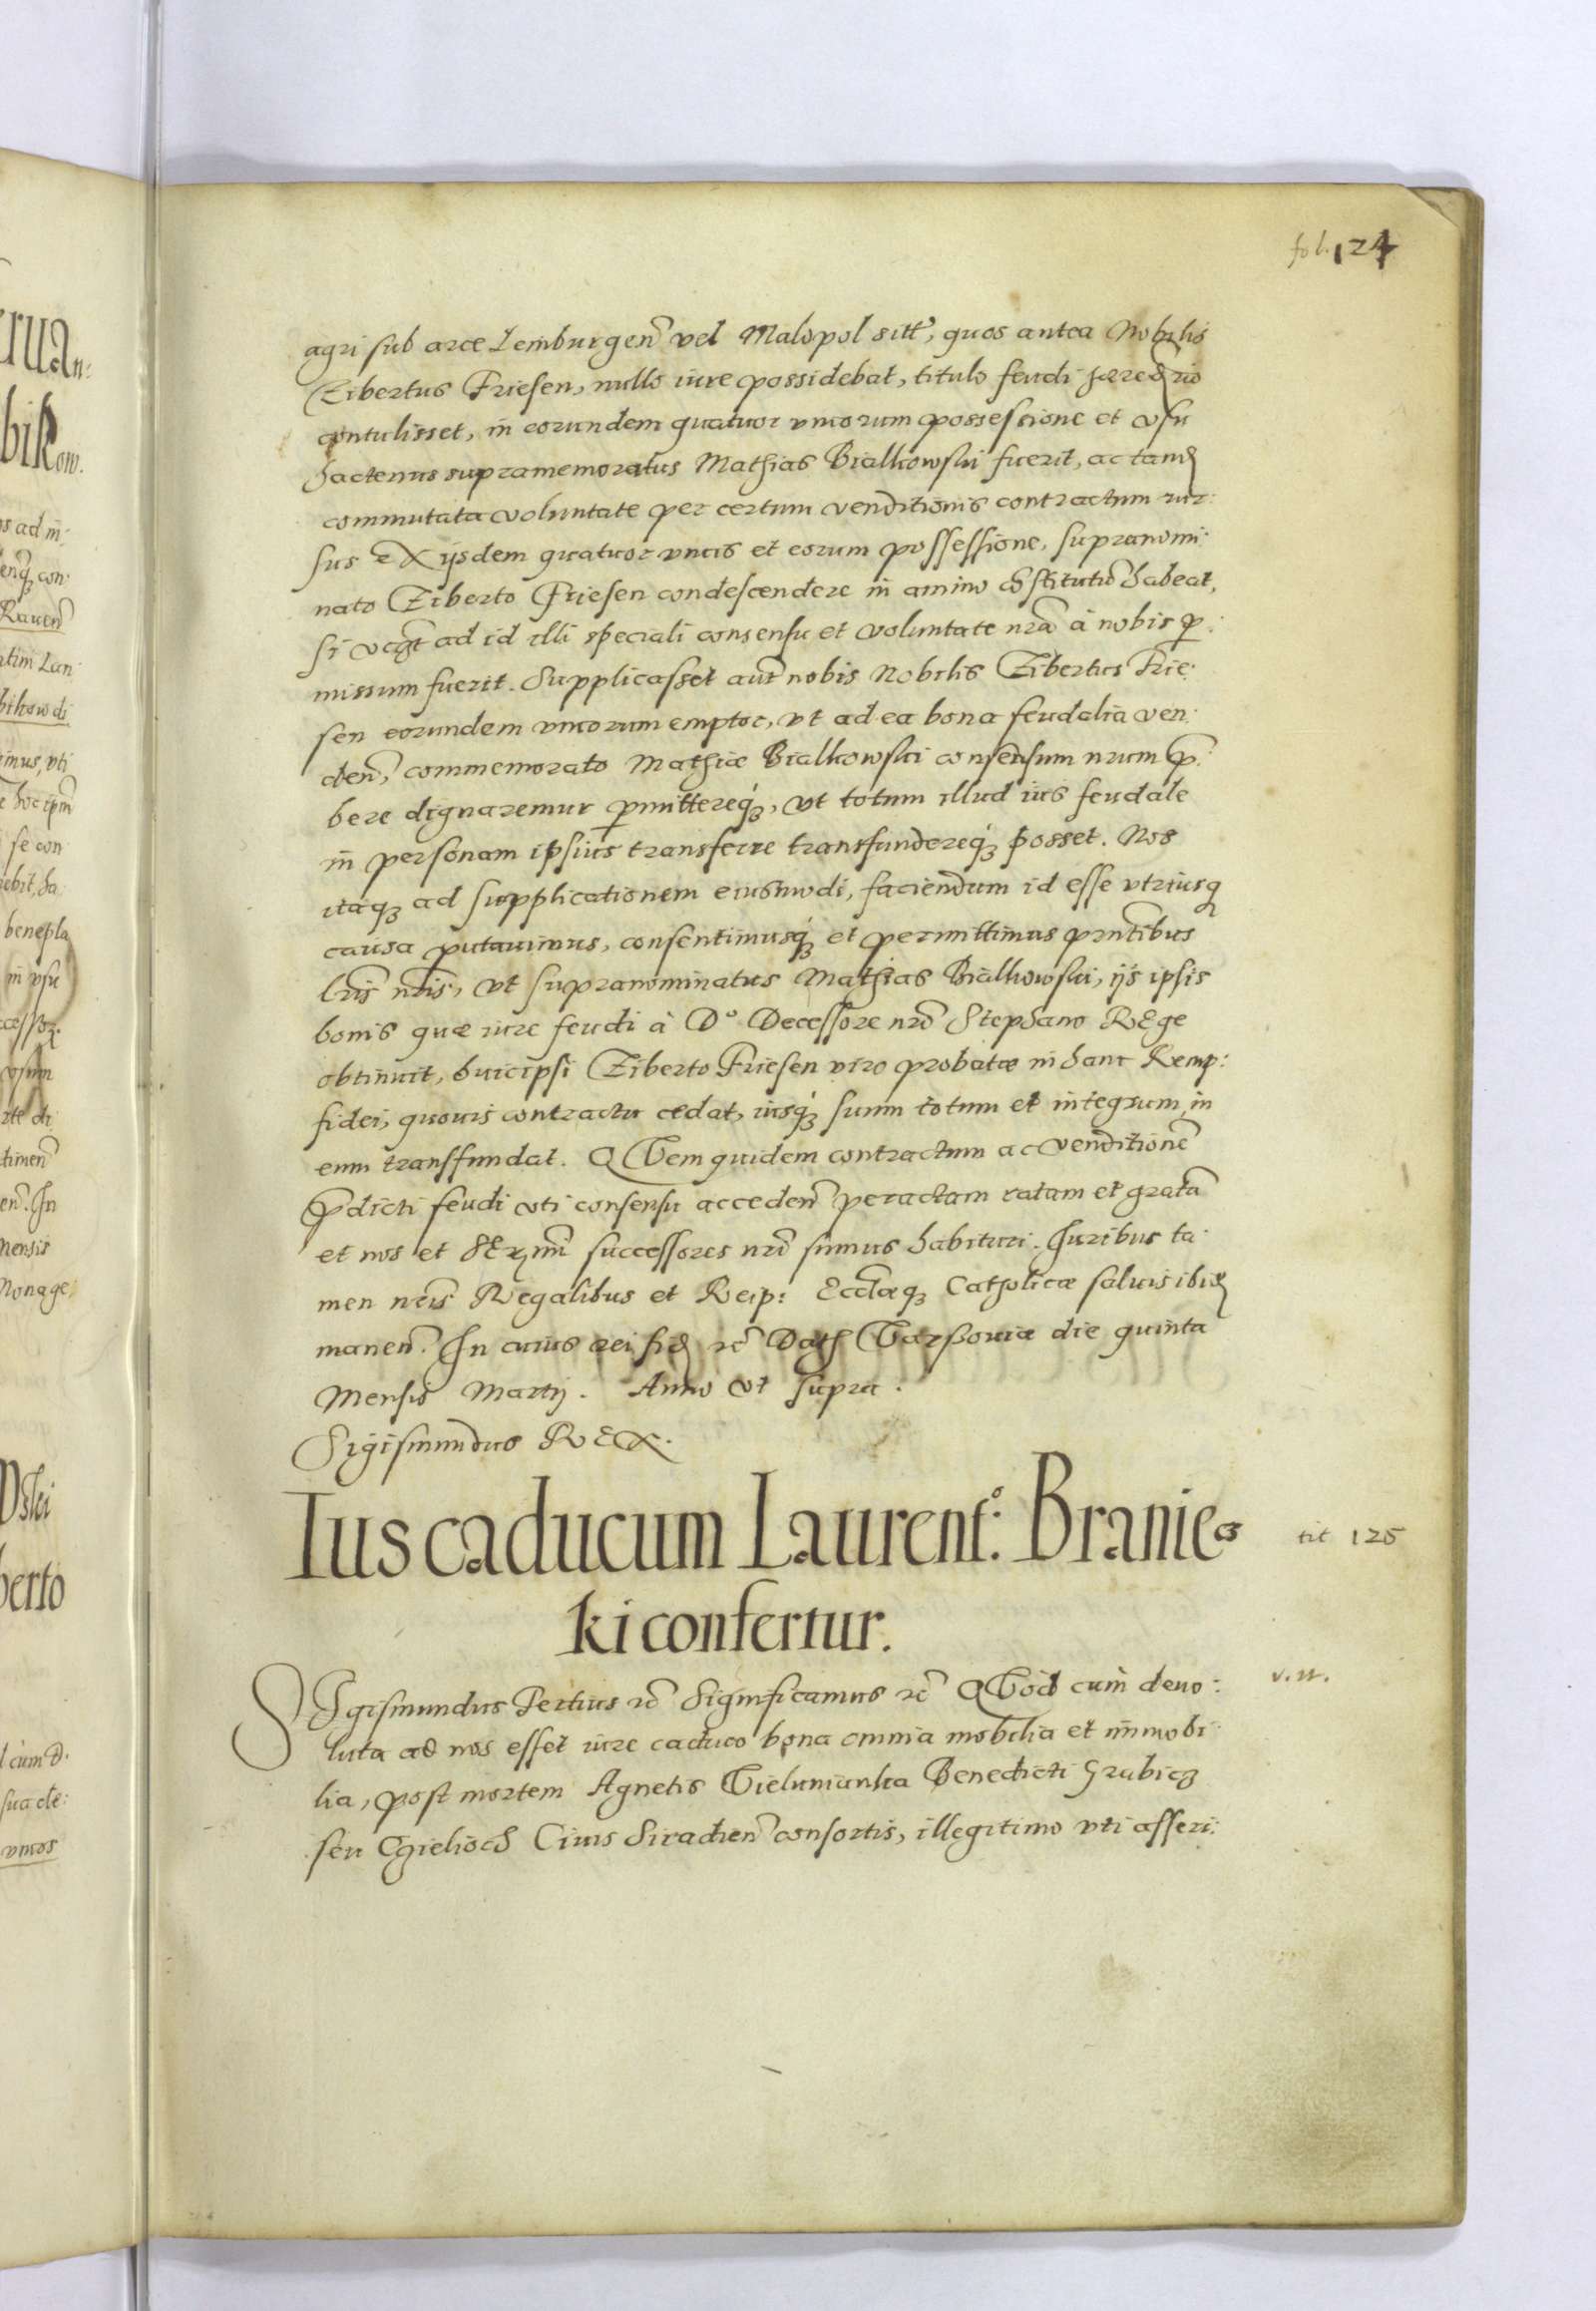 fol. 124
agri sub arce Lemburgeñ vel Malopol sitt, quos antea Nobilis
Tibertus Friesen, nullo iure possidebat, titulo feudi hæredrio
contulisset, in eorundem quatuor vncorum possessione et vsu
hactenus supramemoratus Mathias Bialkowski fuerit, ac tand
commutata voluntate per certum venditionis contractum rur:
sus ex ijsdem quatuor vncis et eorum possessione, supranomi:
nato Tiberto Friesen condescendere in animo cōstitutū habeat,
si ad id illi speciali consensu et voluntate nrā à nobis p:
missum fuerit. Supplicasset aut nobis Nobilis Tibertus Frie:
sen eorundem vncorum emptor, vt ad ea bona feudalia ven:
deñ, commemorato Mathiæ Bialkowski consensum nrum p:
bere dignaremur pmittereq3, vt totum illud ius feudale
in personam ipsius transferre transfundereq3 posset. Nos
itaq3 ad supplicationem eiusmodi, faciendum id esse vtriusq
causa putauimus, consentimusq3 et permittimus prntibus
lris nris, vt supranominatus Mathias Bialkowski, ijs ipsis
bonis quæ iure feudi à D° Decessore nrō Stephano Rege
obtinuit, huic ipsi Tiberto Friesen viro probatæ in hanc Remp:
fidei, quouis contractu cedat, iusq3 suum totum et integrum in
eum transfundat. QVem quidem contractum ac venditionē
pdicti feudi vti consensu accedeñ peractam ratam et gratā
et nos et Sermi successores nri simus habituri. Iuribus ta:
men nris Regalibus et Reip: Ecclæq3 Catholicæ saluis ibid
maneñ. In cuius rei fid rc̃ Dath Varßouiæ die quinta
Mensis Martij. Anno vt supra.
Sigismundus REX.
Ius caducum Laurent°: Branie
ki confertur.
tit 125
SIgismundus Tertius rc̃ Significamus rc̃ QVod cum deuo:
v. n.
luta ad nos esset iure caduco bona omnia mobilia et immobi:
lia, post mortem Agnetis Vielunianka Benedicti Grabicz
seu Cgielioch Ciuis Siradieñ consortis, illegitimo vti asseri: